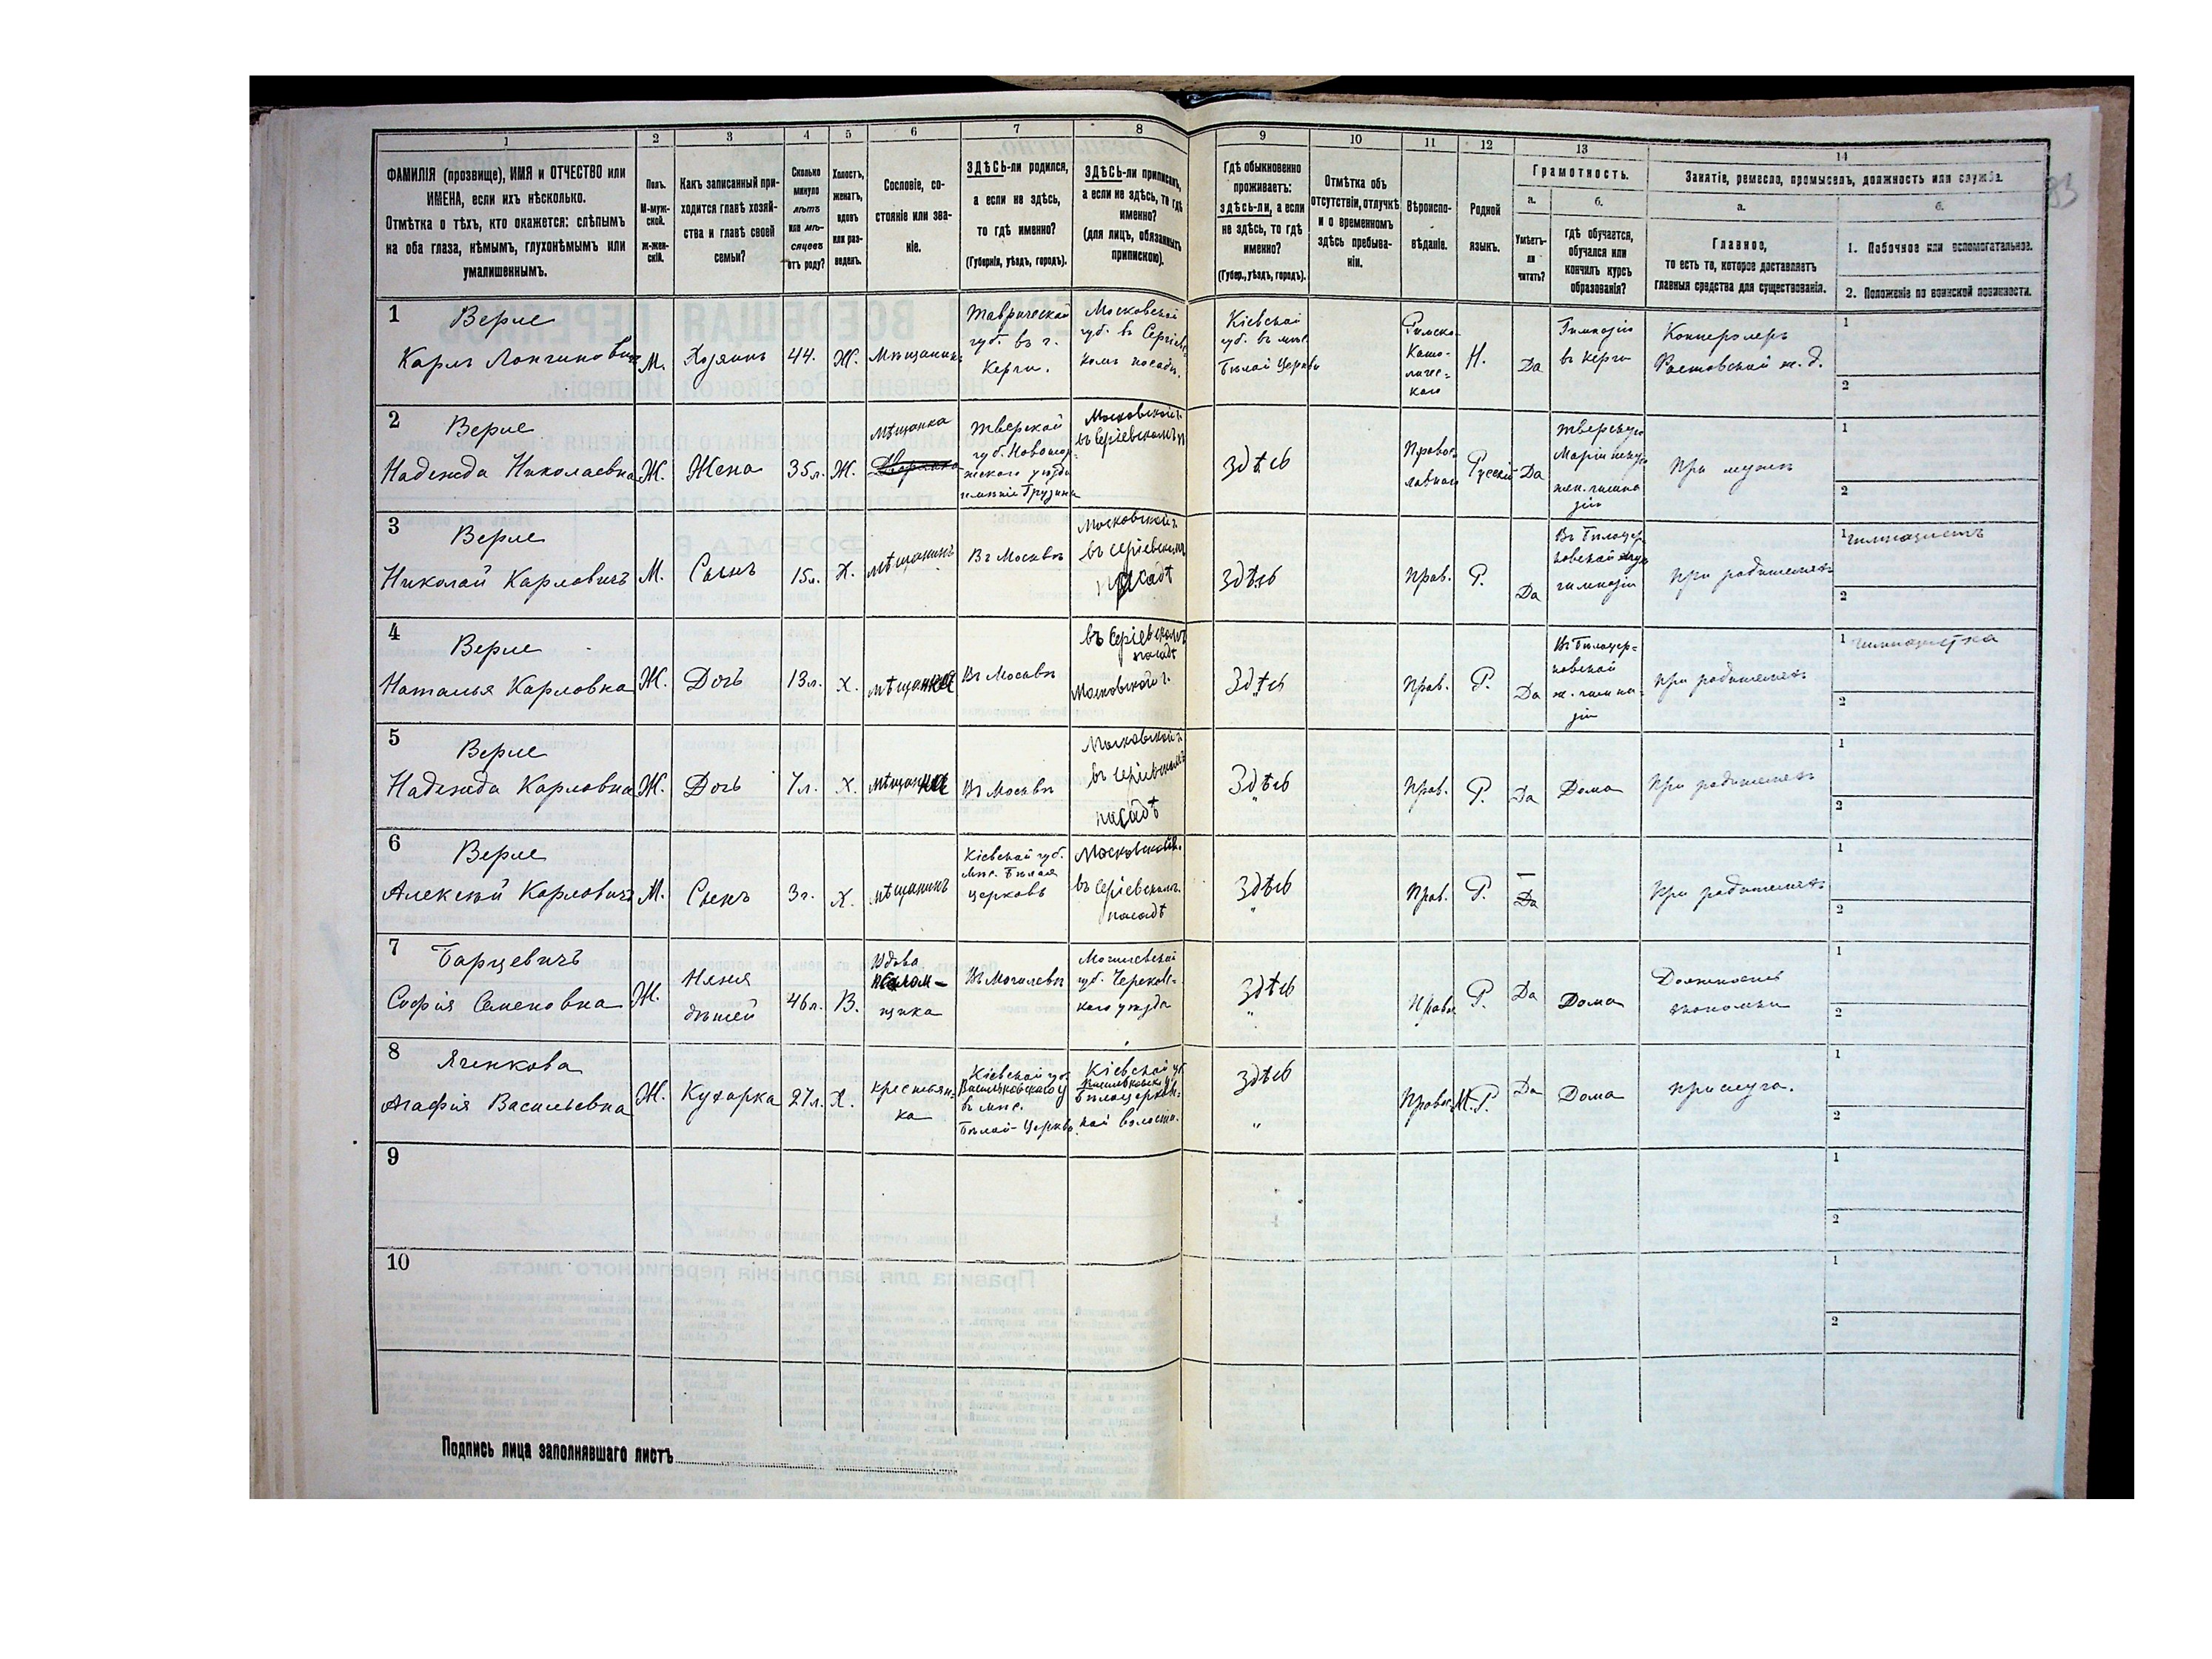 1 2 3 4 5 6 7 8 9 10 11 12 13 14
ФАМИЛІЯ (прозвище), ИМЯ и ОТЧЕСТВО или ИМЕНА, если ихъ нѣсколько.
Отмѣтка о тѣхъ, кто окажется: слѣпымъ на оба глаза, нѣмымъ, глухонѣмымъ или умалишеннымъ.
Полъ.
М-мужской.
ж-женскій.
Какъ записанный приходится главѣ хозяйства и главѣ своей семьи?
Сколько минуло лѣтъ или мѣсяцевъ отъ роду?
Холостъ, женатъ, вдовъ или разведенъ.
Сословіе, состояніе или званіе.
ЗДѢСЬ-ли родился, а если не здѣсь, то гдѣ именно?
(Губернія, уѣздъ, городъ).
ЗДѢСЬ-ли приписанъ, а если не здѣсь, то гдѣ именно?
(для лицъ, обязанныхъ припискою).
Гдѣ обыкновенно проживаетъ: здѣсь-ли, а если не здѣсь, то гдѣ именно?
(Губер., уѣздъ, городъ).
Отмѣтка объ отсутствіи, отлучкѣ и о временномъ здѣсь пребываніи.
Вѣроисповѣданіе.
Родной языкъ.
Грамотность.
а.
Умѣетъ-ли читать?
б.
гдѣ обучается, обучался или кончилъ курсъ образованія?
Занятіе, ремесло, промыселъ, должность или служба.
а.
Главное,
то есть то, которое доставляетъ главныя средства для существованія.
б.
1. Побочное или вспомогательное.
2. Положеніе по воинской повинности.
1
Верле
Карлъ Лонгиновичъ
М.
Хозяинъ
44.
Ж.
Мѣщанинъ
Таврической
губ. въ г.
Керчи.
Московской
губ. въ Сергіевс
комъ посадѣ.
Кіевской
губ. въ мѣс.
Бѣлой Церкви
Римско
Като-
личе-
каго
Н.
Да
Гимназіи
въ Керчи
Контролеръ
Фастовской ж. д.
1
2
2
Верле
Надежда Николаевна
Ж.
Жена
35л.
Ж.
мѣщанка
Тверской
губ. Новотор
жскаго уѣзда
имѣніи Грузины
Московской г.
въ Сергіевскомъ п
Здѣсь
Правос
лавная
Русскій
Да
Тверскую
Маріинскую
жен. гимна
зію
При мужѣ
1
2
3
Верле
Николай Карловичъ
М.
Сынъ
15л.
Х.
мѣщанинъ
Въ Москвѣ
Московской г.
въ Сергіевскомъ
посадѣ
Здѣсь
Прав.
Р.
Да
Въ Бѣлоцер
ковской
гимназіи
При родителяхъ
1 гимназистъ
2
4
Верле
Наталья Карловна
Ж.
Дочь
13л.
Х.
мѣщанка
Въ Москвѣ
въ Сергіевскомъ
посадѣ
Московской г.
Здѣсь
Прав.
Р.
Да
Въ Бѣлоцер=
ковской
ж. гимна=
зіи
При родителяхъ
1 гимназистка
2
5
Верле
Надежда Карловна
Ж.
Дочь
7л.
Х.
мѣщанка
Въ Москвѣ
Московской г.
въ Сергіевскомъ
посадѣ
Здѣсь
Прав.
Р.
Да
Дома
При родителяхъ
1
2
6
Верле
Алексѣй Карловичъ
М.
Сынъ
3г.
Х.
мѣщанинъ
Кіевской губ.
мѣс. Бѣлая
Церковь
Московской г.
въ Сергіевскомъ
посадѣ
Здѣсь
Прав.
Р.
—
Да
При родителяхъ
1
2
7
Барцевичъ
Софія Семеновна
Ж.
Няня
дѣтей
46л.
В.
Вдова
псалом-
щика
Въ Могилевѣ
Могилевской
губ. Чериковс-
каго уѣзда
Здѣсь
"
Правос
Р.
Да
Дома
Должность
экономки
1
2
8
Яченкова
Агафія Васильевна
Ж.
Кухарка
27л.
Х.
крестьян-
ка
Кіевской губ
Васильковскаго у
въ мѣс.
Бѣлой-Церкви.
Кіевской губ
Васильковск. у.
Бѣлоцерков-
кой волости.
Здѣсь
"
Правос.
М.Р.
Да
Дома
прислуга.
1
2
9
1
2
10
1
2
Подпись лица заполнявшаго листъ